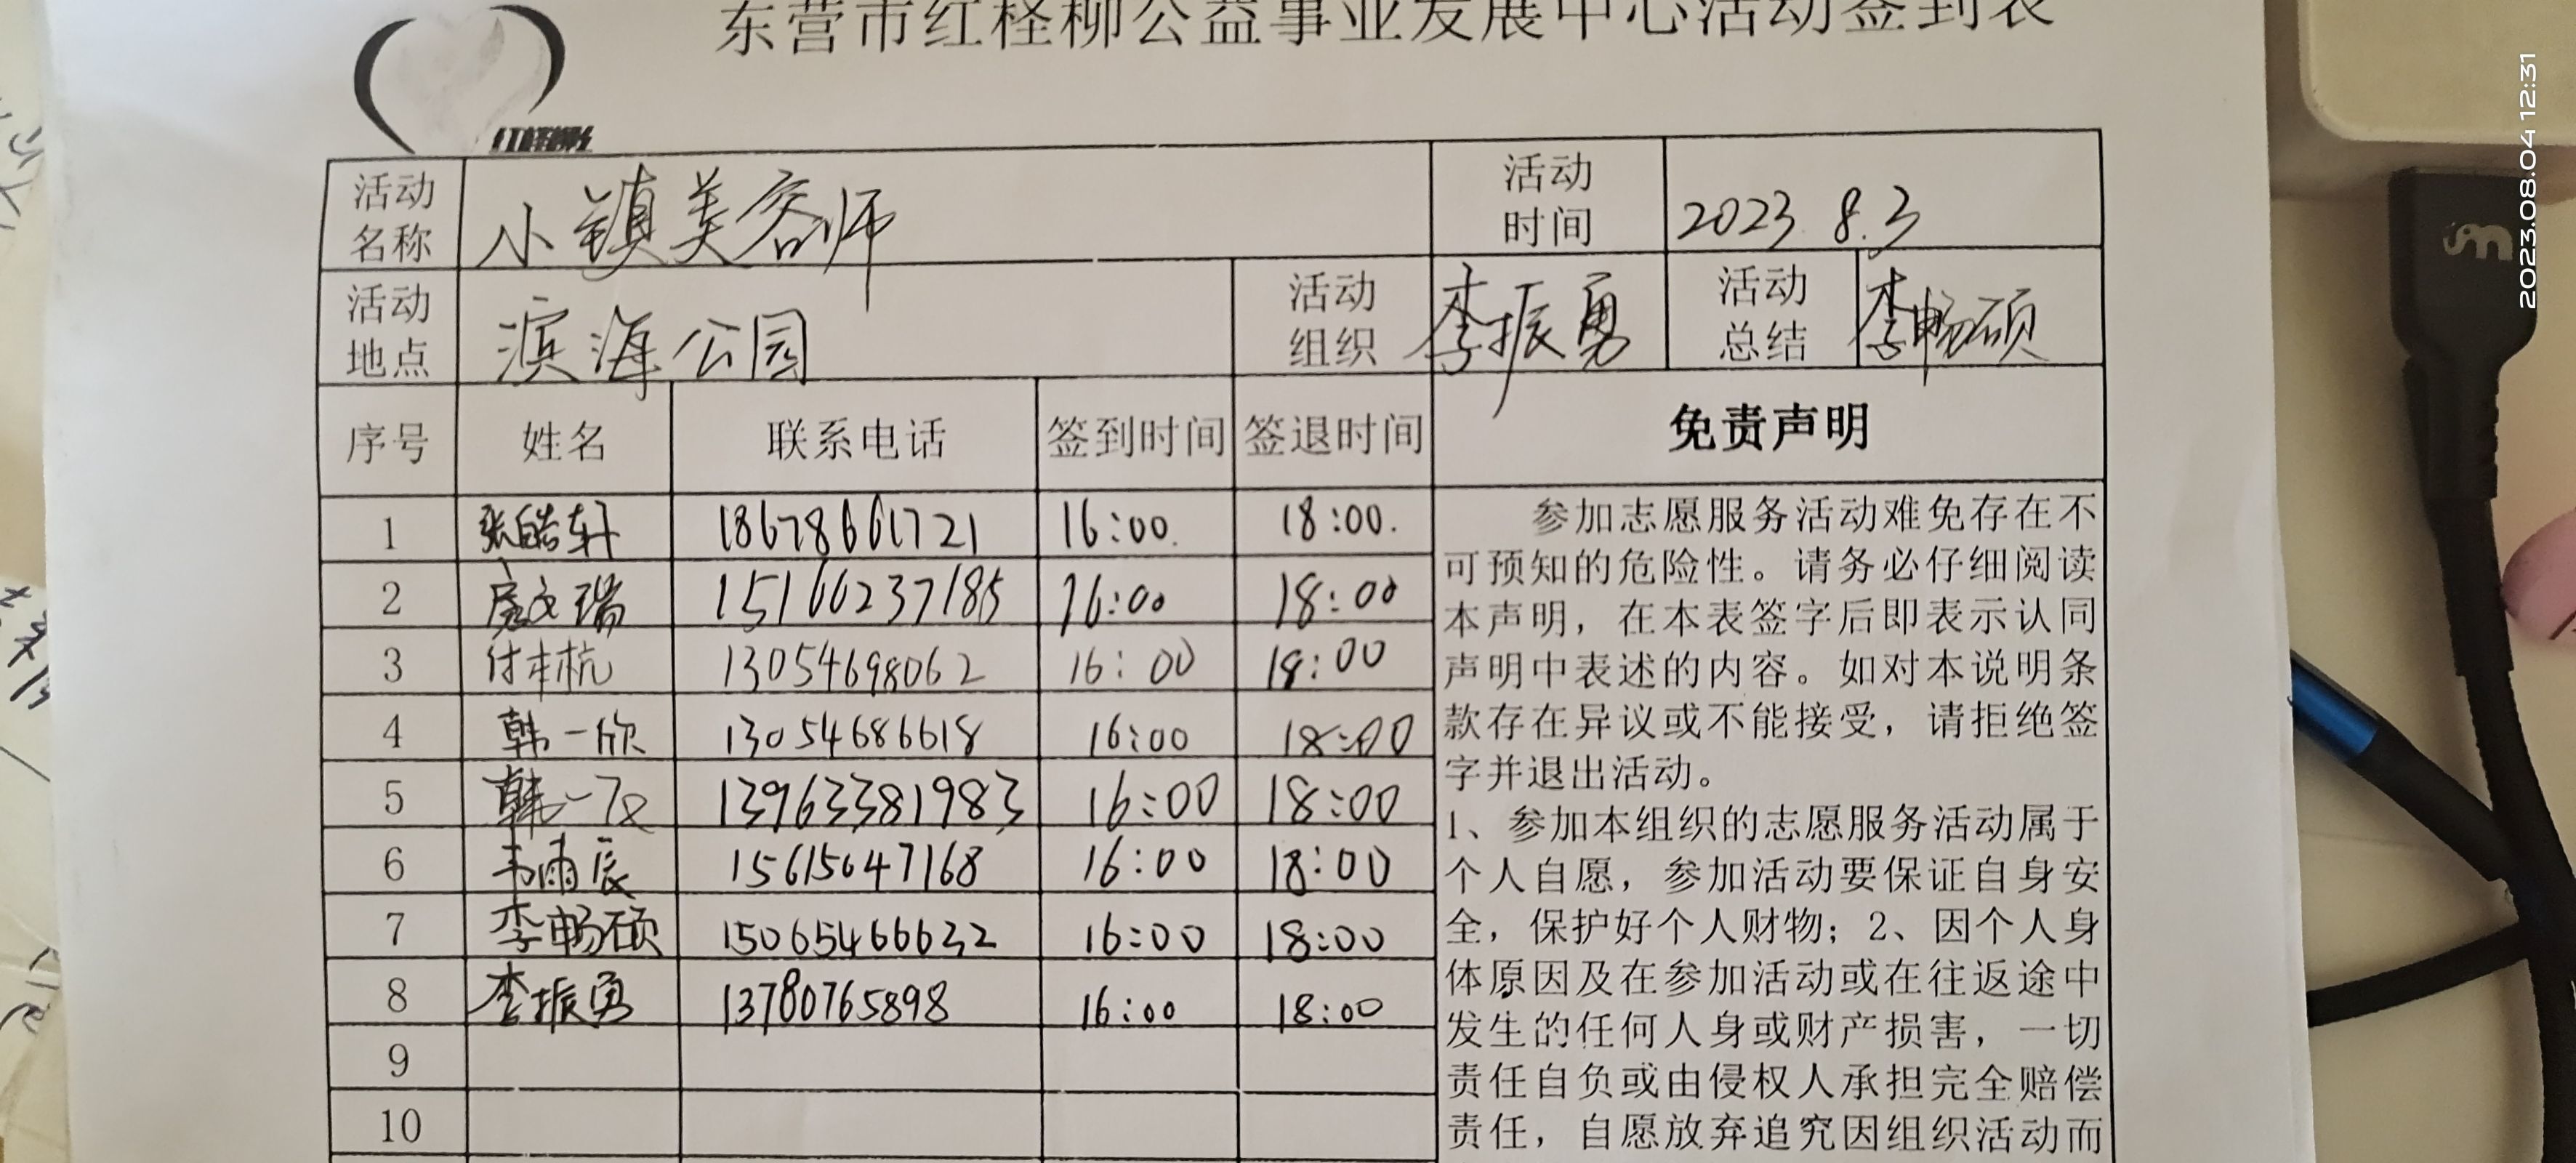 东营市红柽柳公益事业发展中心活动签到表
红柽柳
活动名称 小镇美容师 活动时间 2023.8.3
活动地点 滨海公园 活动组织 李振勇 活动总结 李畅硕
序号 姓名 联系电话 签到时间 签退时间 免责声明
1 张皓轩 18678661721 16:00. 18:00.
2 文瑞 15166237185 16:00 18:00
3 付本杭 13054698062 16:00 18:00
4 韩一欣 13054686618 16:00 18:00
5 韩一 13963381983 16:00 18:00
6 韦雨辰 15615647168 16:00 18:00
7 李畅硕 15065466632 16:00 18:00
8 李振勇 13780765898 16:00 18:00
9
10
参加志愿服务活动难免存在不
可预知的危险性。请务必仔细阅读
本声明，在本表签字后即表示认同
声明中表述的内容。如对本说明条
款存在异议或不能接受，请拒绝签
字并退出活动。
1、参加本组织的志愿服务活动属于
个人自愿，参加活动要保证自身安
全，保护好个人财物；2、因个人身
体原因及在参加活动或在往返途中
发生的任何人身或财产损害，一切
责任自负或由侵权人承担完全赔偿
责任，自愿放弃追究因组织活动而
2023.08.04 12:31